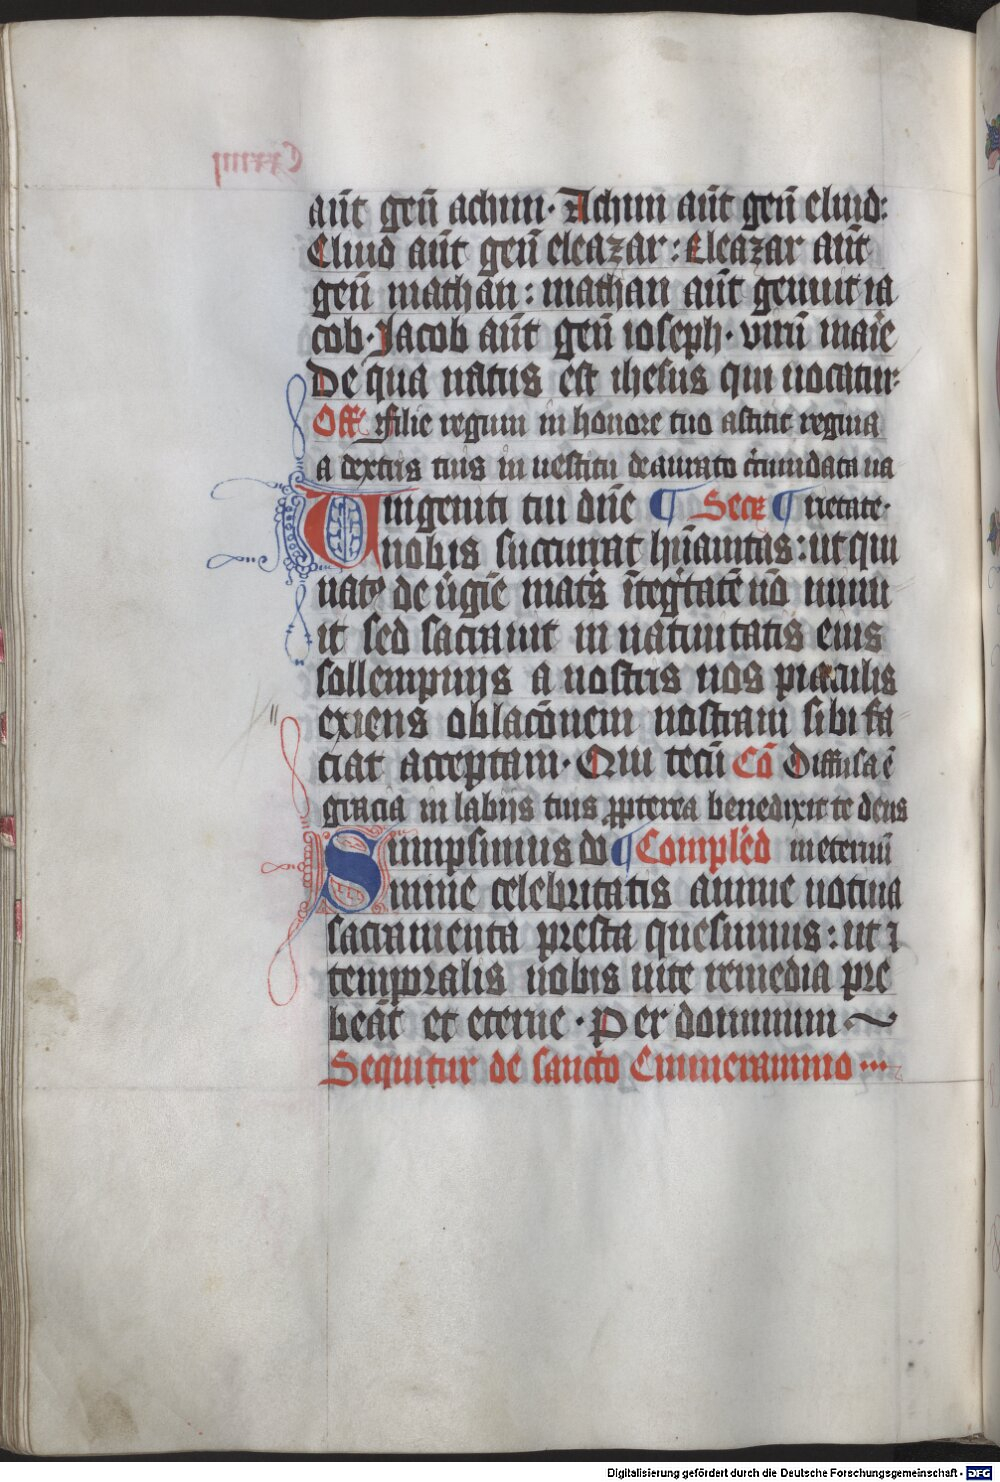 aūt geū achim· Achim aūt geū eliud:
Eliud aūt geū eleazar: Eleazar aūt
geū mathan: mathan aūt genuit ia
cob· Jacob aūt geū ioseph· virū marie
De qua natus est ihesus qui uocatur:
Off Filie regum in honore tuo astitit regina
a dextris tuis in uestitu deaurato circumdata ua
Unigeniti tui dn̄e ¶ Secr ¶ rietate·
nobis succurrat hūanitas: ut qui
natꝰ de ūgīe mat̄s ītegͥtatē nō minu
it sed sacrauit in natiuitatis eius
sollempnijs a nostris nos piaculis
exiens oblac̄onem nostram sibi fa
ciat acceptam· Qui tecū Cō Diffusa ē
gracia in labijs tuis ꝓpterea benedixit te deus
Sumpsimus dn̄ ¶ Complēd in eternū
mine celebritatis annue uotiua
sacramenta presta quesumus: ut ⁊
temporalis nobis uite remedia pre
beāt et eterne· Per dominum
Sequitur de sancto Emmerammo
Digitalisierung gefördert durch die Deutsche Forschungsgemeinschaft - DFG